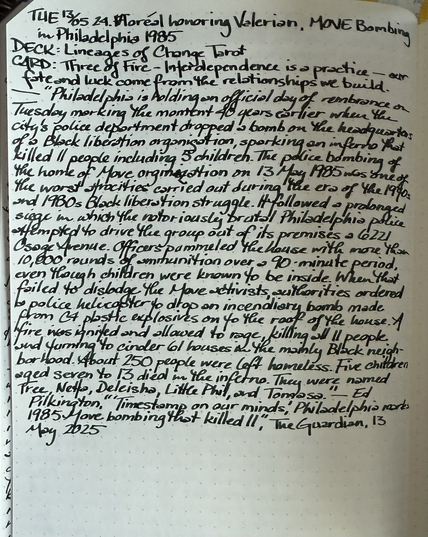 THE 13/05 24. Floréal honoring Valerian, MOVE Bombing
in Philadelphia 1985
DECK: Lineages of Change Tarot
CARD: Three of Fire – Interdependence is a practice – our
fate and luck come from the relationships we build.
— "Philadelphia is holding an official day of rembrance on
Tuesday marking the moment 40 years earlier when the
city's police department dropped a bomb on the headquarters
of a Black liberation organization, sparking an inferno that
killed 11 people including 5 children. The police bombing of
the home of Move organization on 13 May 1985 was one of
the worst atrocities carried out during the era of the 1970s
and 1980s Black liberation struggle. It followed a prolonged
siege in which the notoriously brutal Philadelphia police
attempted to drive the group out of its premises a 6221
Osage Avenue. Officers pummeled the house with more than
10,000 rounds of ammunition over a 90-minute period,
even though children were known to be inside. When that
failed to dislodge the Move activists, authorities ordered
a police helicopter to drop an incendiary bomb made
from C4 plastic explosives on to the roof of the house. A
fire was ignited and allowed to rage, killing all 11 people
and turning to cinder 61 houses in the mainly Black neigh-
borhood. About 250 people were left homeless. Five children
aged seven to 13 died in the inferno. They were named
Tree, Netta, Deleisha, Little Phil, and Tomasa. — Ed
Pilkington, "'Timestamp on our minds,' Philadelphia marks
1985 Move bombing that killed 11," The Guardian, 13
May 2025